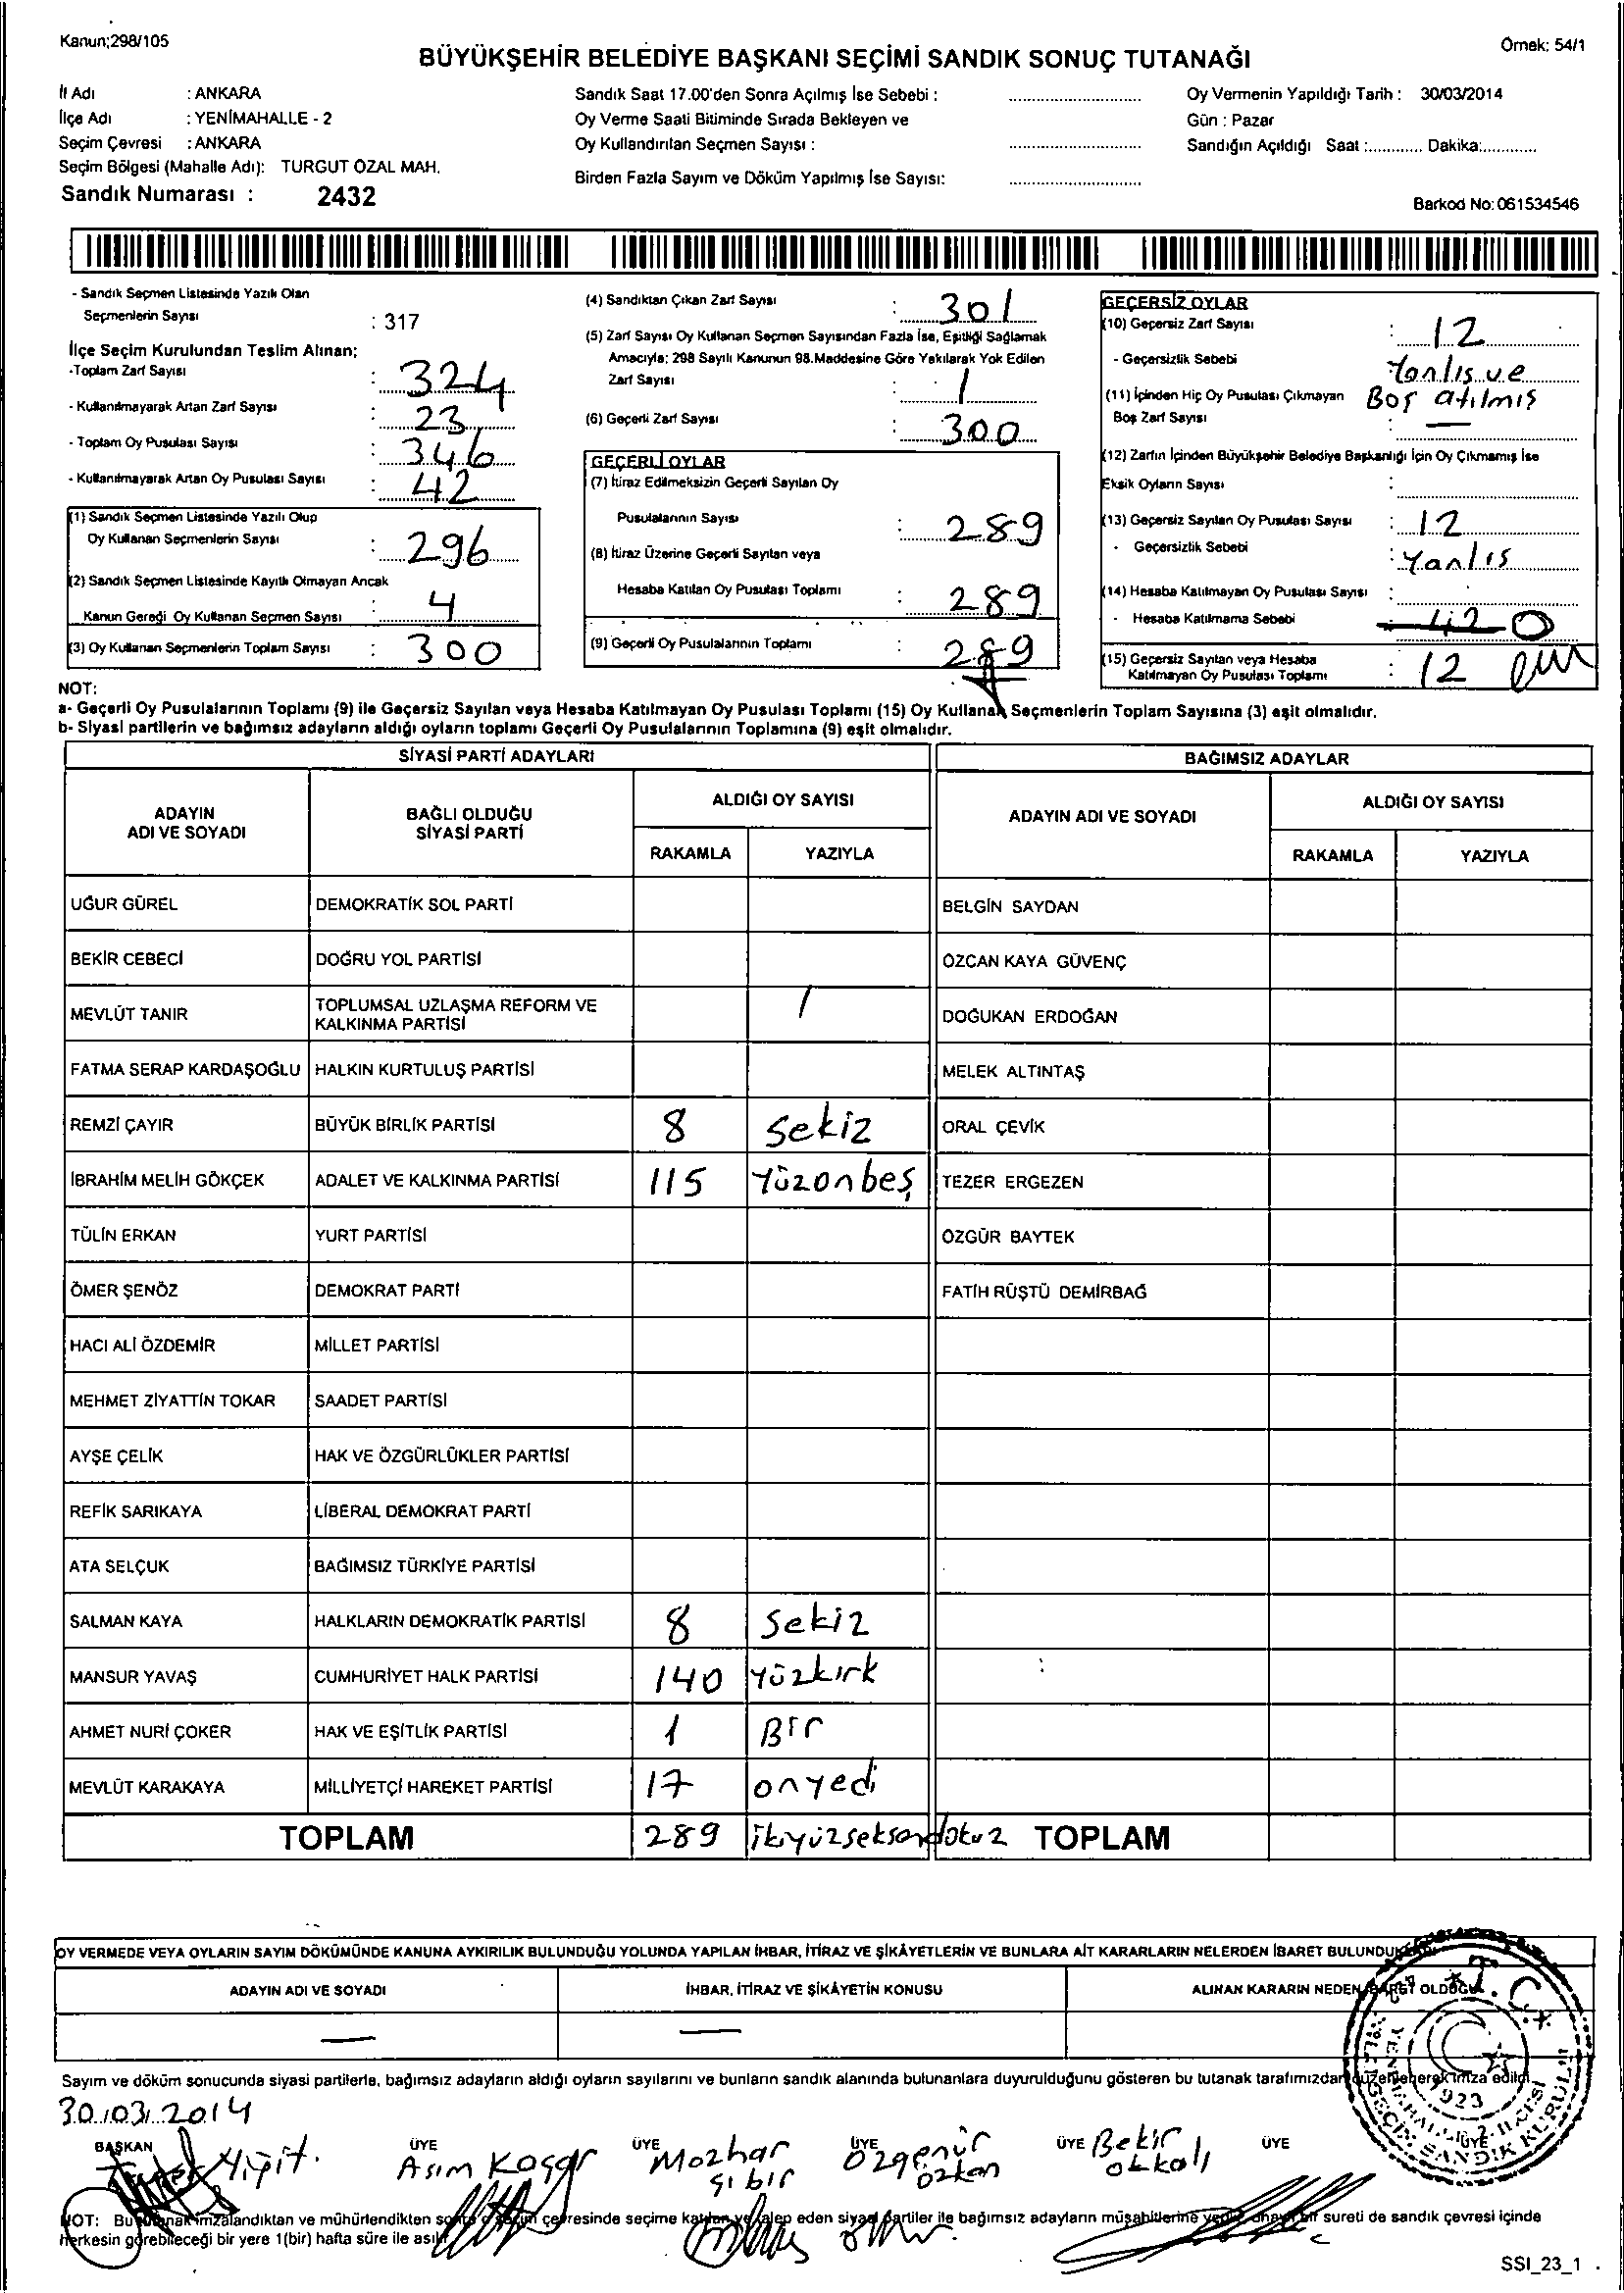 Kanun;298/105
Örnek: 54/1
BÜYÜKŞEHİR BELEDİYE BAŞKANI SEÇİMİ SANDIK SONUÇ TUTANAĞI
İl Adı : ANKARA
İlçe Adı : YENİMAHALLE - 2
Seçim Çevresi : ANKARA
Seçim Bölgesi (Mahalle Adı): TURGUT ÖZAL MAH.
Sandık Numarası : 2432
Sandık Saat 17.00'den Sonra Açılmış İse Sebebi :
Oy Verme Saati Bitiminde Sırada Bekleyen ve
Oy Kullandırılan Seçmen Sayısı :
Birden Fazla Sayım ve Döküm Yapılmış İse Sayısı:
Oy Vermenin Yapıldığı Tarih : 30/03/2014
Gün : Pazar
Sandığın Açıldığı Saat :............ Dakika:............
Barkod No: 061534546
- Sandık Seçmen Listesinde Yazılı Olan
Seçmenlerin Sayısı : 317
İlçe Seçim Kurulundan Teslim Alınan;
-Toplam Zarf Sayısı : 324
- Kullanılmayarak Artan Zarf Sayısı : 23
- Toplam Oy Pusulası Sayısı : 346
- Kullanılmayarak Artan Oy Pusulası Sayısı : 42
(1) Sandık Seçmen Listesinde Yazılı Olup
Oy Kullanan Seçmenlerin Sayısı : 296
(2) Sandık Seçmen Listesinde Kayıtlı Olmayan Ancak
Kanun Gereği Oy Kullanan Seçmen Sayısı : 4
(3) Oy Kullanan Seçmenlerin Toplam Sayısı : 300
(4) Sandıktan Çıkan Zarf Sayısı : 301
(5) Zarf Sayısı Oy Kullanan Seçmen Sayısından Fazla İse, Eşitliği Sağlamak
Amacıyla; 298 Sayılı Kanunun 98.Maddesine Göre Yakılarak Yok Edilen
Zarf Sayısı : 1
(6) Geçerli Zarf Sayısı : 300
GEÇERLİ OYLAR
(7) İtiraz Edilmeksizin Geçerli Sayılan Oy
Pusulalarının Sayısı : 289
(8) İtiraz Üzerine Geçerli Sayılan veya
Hesaba Katılan Oy Pusulası Toplamı : 289
(9) Geçerli Oy Pusulalarının Toplamı : 289
GEÇERSİZ OYLAR
(10) Geçersiz Zarf Sayısı : 12
- Geçersizlik Sebebi Yanlış ve
Boş atılmış
(11) İçinden Hiç Oy Pusulası Çıkmayan
Boş Zarf Sayısı : —
(12) Zarfın İçinden Büyükşehir Belediye Başkanlığı İçin Oy Çıkmamış İse
Eksik Oyların Sayısı :
(13) Geçersiz Sayılan Oy Pusulası Sayısı : 12
- Geçersizlik Sebebi : Yanlıs
(14) Hesaba Katılmayan Oy Pusulası Sayısı :
- Hesaba Katılmama Sebebi 42 0
(15) Geçersiz Sayılan veya Hesaba
Katılmayan Oy Pusulası Toplamı : 12
NOT:
a- Geçerli Oy Pusulalarının Toplamı (9) ile Geçersiz Sayılan veya Hesaba Katılmayan Oy Pusulası Toplamı (15) Oy Kullanan Seçmenlerin Toplam Sayısına (3) eşit olmalıdır.
b- Siyasi partilerin ve bağımsız adayların aldığı oyların toplamı Geçerli Oy Pusulalarının Toplamına (9) eşit olmalıdır.
SİYASİ PARTİ ADAYLARI
BAĞIMSIZ ADAYLAR
ADAYIN ADI VE SOYADI
BAĞLI OLDUĞU SİYASİ PARTİ
ALDIĞI OY SAYISI
RAKAMLA YAZIYLA
ADAYIN ADI VE SOYADI
ALDIĞI OY SAYISI
RAKAMLA YAZIYLA
UĞUR GÜREL DEMOKRATİK SOL PARTİ BELGİN SAYDAN
BEKİR CEBECİ DOĞRU YOL PARTİSİ ÖZCAN KAYA GÜVENÇ
MEVLÜT TANIR TOPLUMSAL UZLAŞMA REFORM VE KALKINMA PARTİSİ / DOĞUKAN ERDOĞAN
FATMA SERAP KARDAŞOĞLU HALKIN KURTULUŞ PARTİSİ MELEK ALTINTAŞ
REMZİ ÇAYIR BÜYÜK BİRLİK PARTİSİ 8 Sekiz ORAL ÇEVİK
İBRAHİM MELİH GÖKÇEK ADALET VE KALKINMA PARTİSİ 115 Yüzonbeş TEZER ERGEZEN
TÜLİN ERKAN YURT PARTİSİ ÖZGÜR BAYTEK
ÖMER ŞENÖZ DEMOKRAT PARTİ FATİH RÜŞTÜ DEMİRBAĞ
HACI ALİ ÖZDEMİR MİLLET PARTİSİ
MEHMET ZİYATTİN TOKAR SAADET PARTİSİ
AYŞE ÇELİK HAK VE ÖZGÜRLÜKLER PARTİSİ
REFİK SARIKAYA LİBERAL DEMOKRAT PARTİ
ATA SELÇUK BAĞIMSIZ TÜRKİYE PARTİSİ
SALMAN KAYA HALKLARIN DEMOKRATİK PARTİSİ 8 Sekiz
MANSUR YAVAŞ CUMHURİYET HALK PARTİSİ 140 Yüzkırk
AHMET NURİ ÇOKER HAK VE EŞİTLİK PARTİSİ 1 Bir
MEVLÜT KARAKAYA MİLLİYETÇİ HAREKET PARTİSİ 17 onyedi
TOPLAM 289 ikiyüzseksendokuz TOPLAM
OY VERMEDE VEYA OYLARIN SAYIM DÖKÜMÜNDE KANUNA AYKIRILIK BULUNDUĞU YOLUNDA YAPILAN İHBAR, İTİRAZ VE ŞİKÂYETLERİN VE BUNLARA AİT KARARLARIN NELERDEN İBARET BULUNDUKLARI
ADAYIN ADI VE SOYADI İHBAR, İTİRAZ VE ŞİKÂYETİN KONUSU ALINAN KARARIN NEDEN İBARET OLDUĞU
— —
T.C.
1923
YENİMAHALLE 2. İLÇESİ
SEÇİM SANDIK KURULU
Sayım ve döküm sonucunda siyasi partilerle, bağımsız adayların aldığı oyların sayılarını ve bunların sandık alanında bulunanlara duyurulduğunu gösteren bu tutanak tarafımızdan düzenlenerek imza edildi.
30.03.2014
BAŞKAN ÜYE ÜYE ÜYE ÜYE ÜYE ÜYE
Yiğit. Asım Koşar Mazhar Özgenur Özkan Bekir
NOT: Bu tutanak imzalandıktan ve mühürlendikten sonra seçim çevresinde seçime katılan ve talep eden siyasi partiler ile bağımsız adayların müşahitlerine verilir, onaylı bir sureti de sandık çevresi içinde
herkesin görebileceği bir yere 1(bir) hafta süre ile asılır.
SSI_23_1